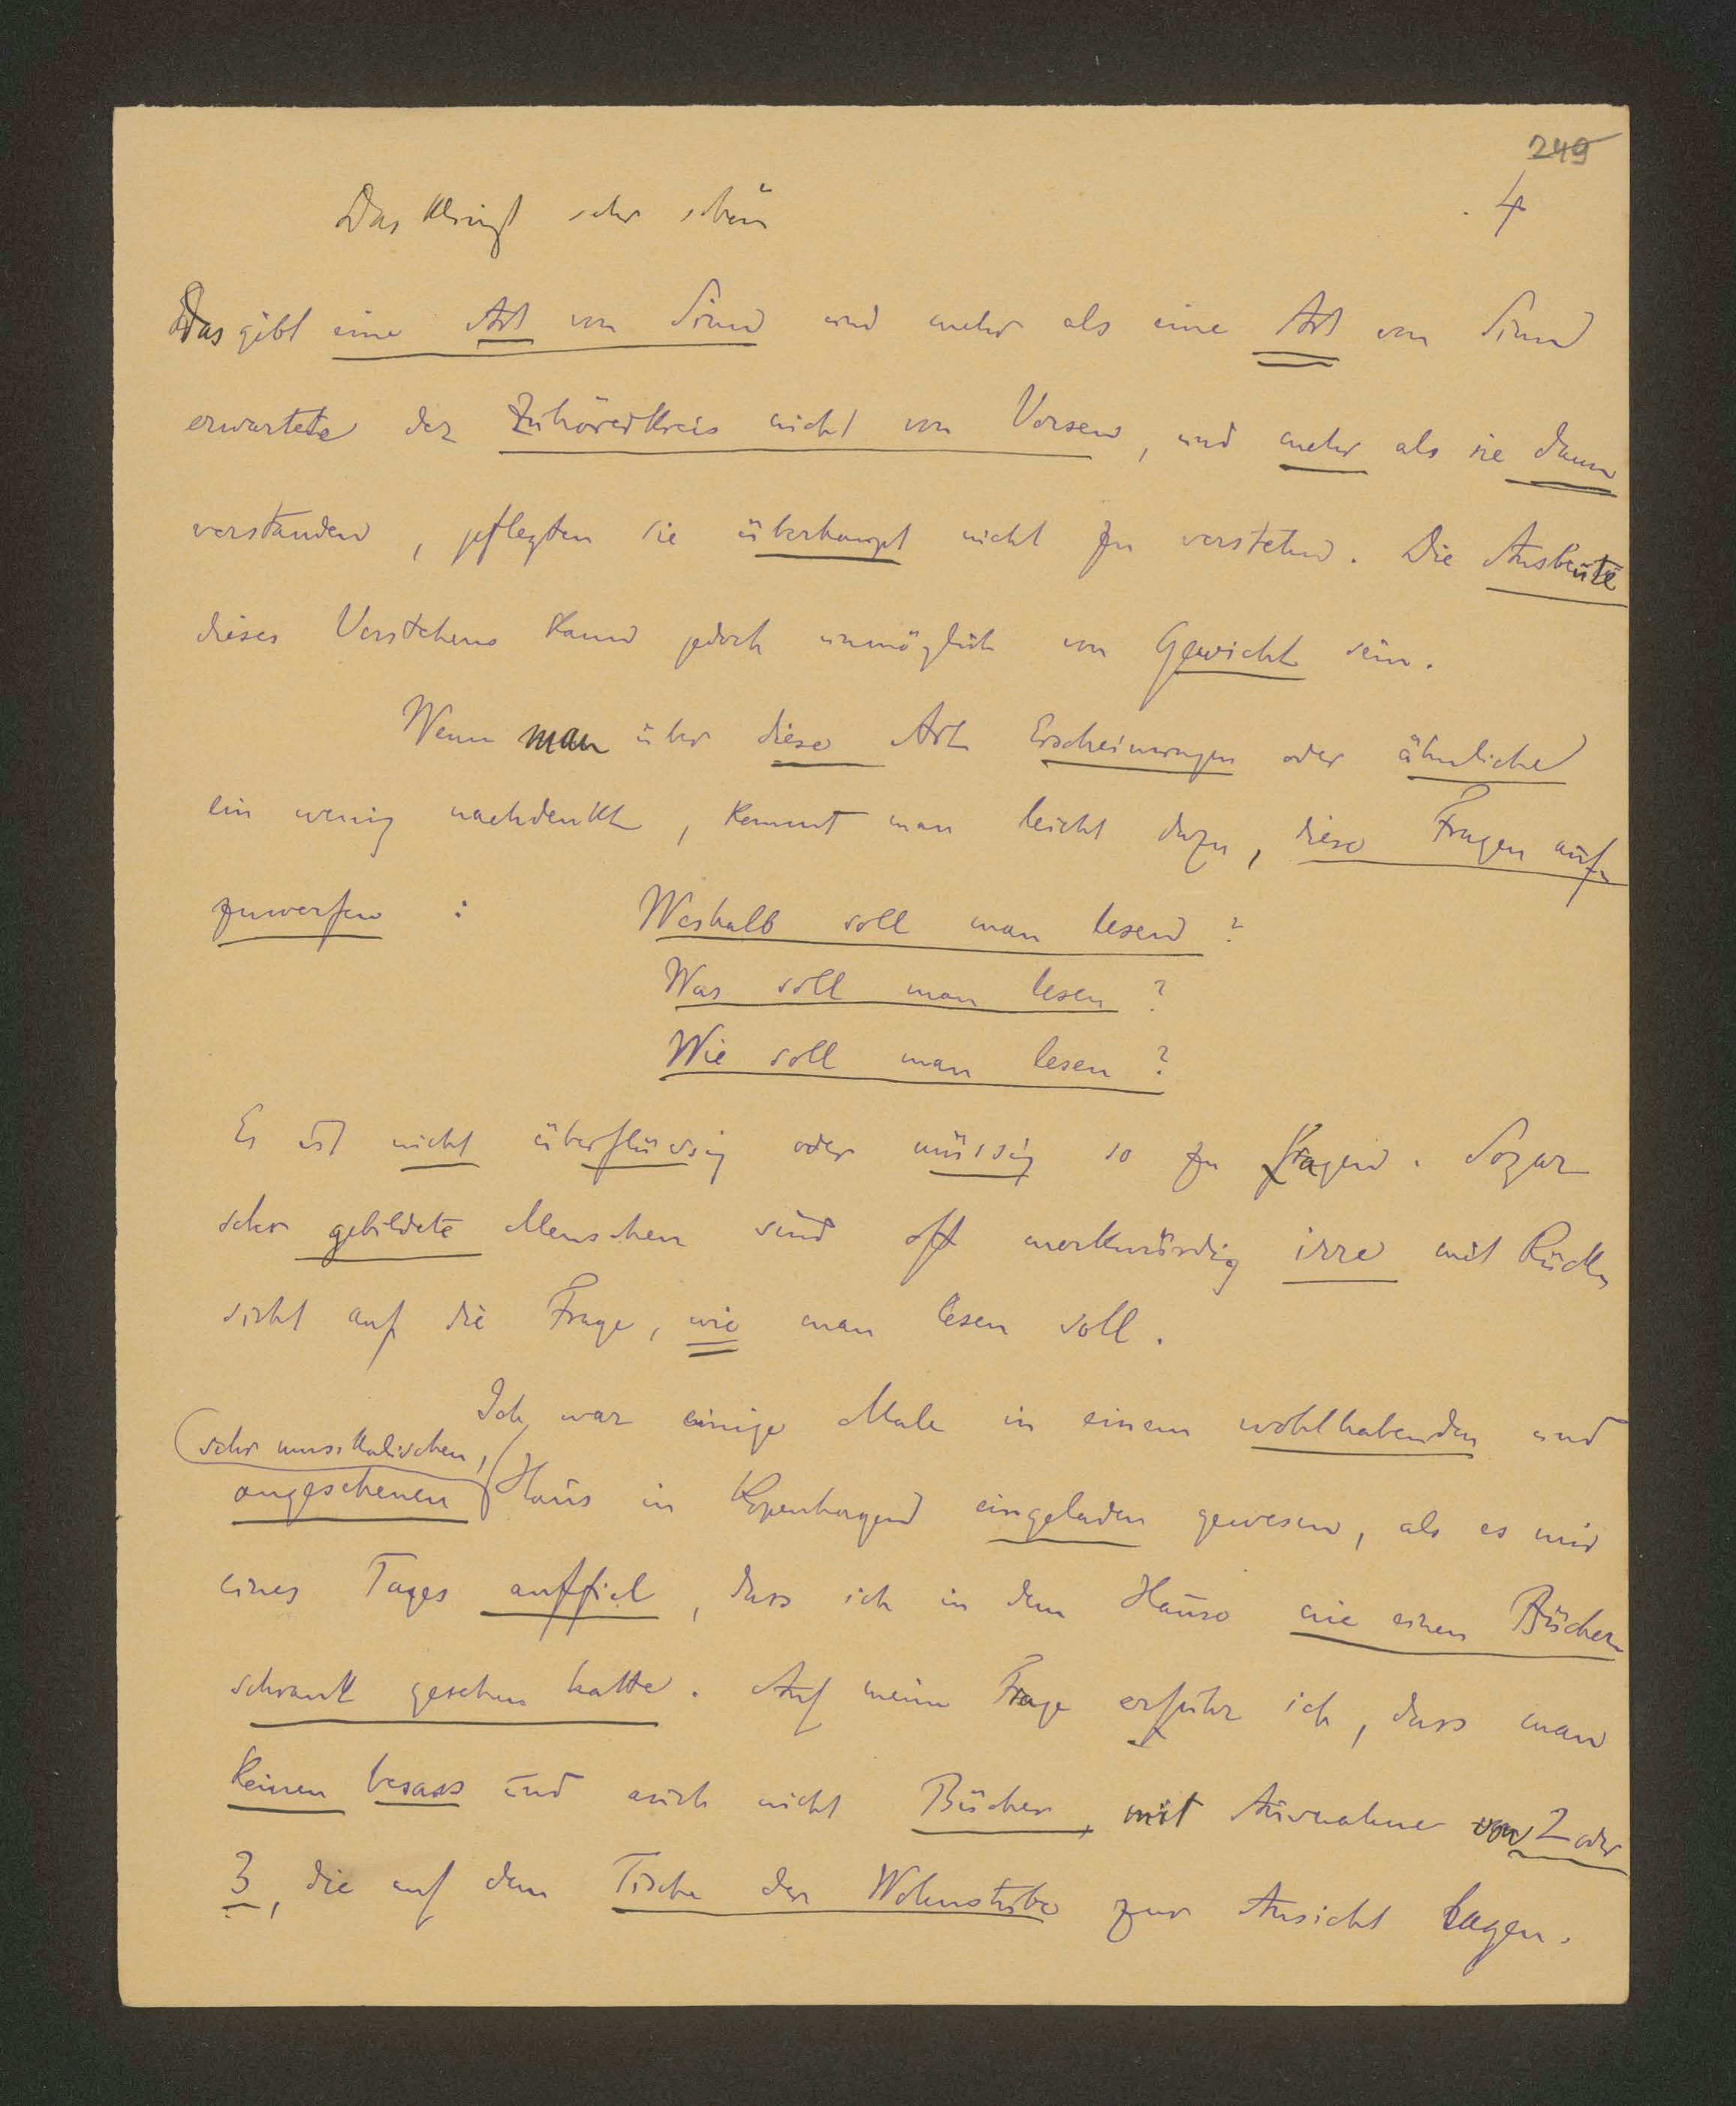 249
4
Das klingt sehr schön
Das gibt eine Art von Sinn und mehr als eine Art von Sinn
erwartete der Zuhörerkreis nicht von Versen, und mehr als sie dann
verstanden, pflegten sie überhaupt nicht zu verstehen. Die Ausbeute
dieses Verstehens kann jedoch unmöglich von Gewicht sein.
Wenn man über diese Art Erscheinungen oder ähnliche
ein wenig nachdenkt, kommt man leicht dazu, diese Fragen auf-
zuwerfen : Weshalb soll man lesen ?
Was soll man lesen ?
Wie soll man lesen ?
Es ist nicht überflüssig oder müssig so zu fragen. Sogar
sehr gebildete Menschen sind oft merkwürdig irre mit Rück-
sicht auf die Frage, wie man lesen soll.
Ich war einige Male in einem wohlhabenden und
(sehr musikalischen,
angesehenen Haus in Kopenhagen eingeladen gewesen, als es mir
eines Tages auffiel, dass ich in dem Hause nie einen Bücher-
schrank gesehen hatte. Auf meine Frage erfuhr ich, dass man
keinen besass und auch nicht Bücher, mit Ausnahme von 2 oder
3, die auf dem Tische der Wohnstube zur Ansicht lagen.